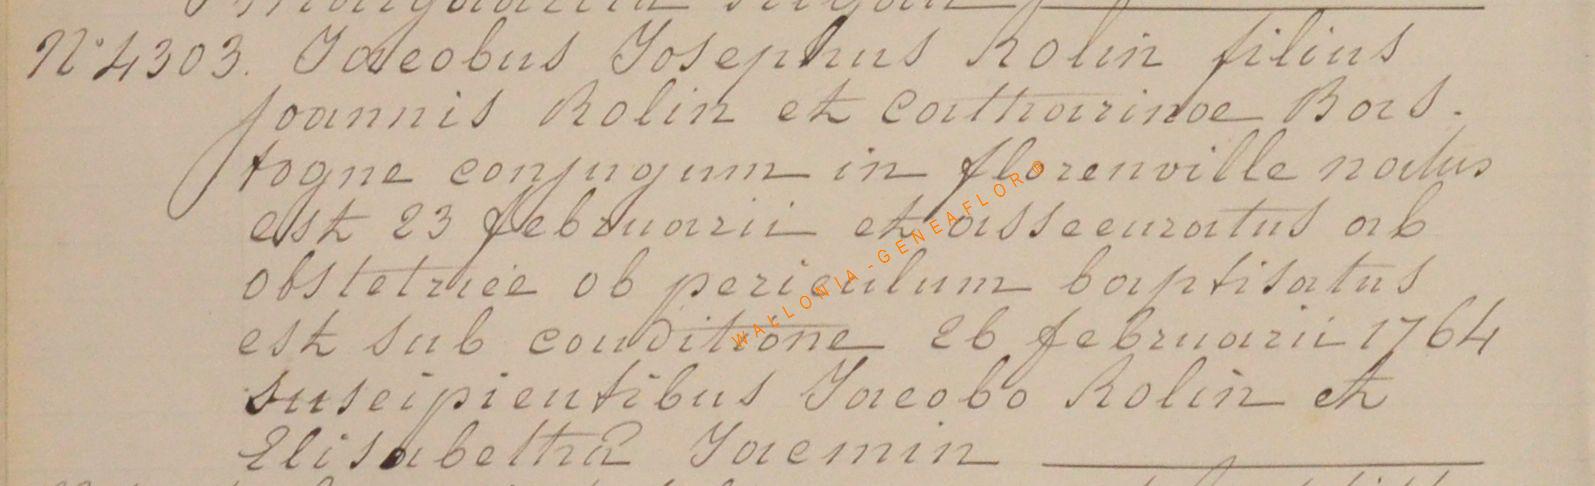 N° 4303. Jacobus Josephus Rolin filius
Joannis Rolin et Catharinae Bas-
togne conjugum in florenville natus
est 23 februarii et assecuratus ab
obstetrice ob periculum baptisatus
est sub conditione 26 februarii 1764
suscipientibus Jacobo Rolin et
Elisabetha Jacmin
WALLONIA-GENEAFLOR®